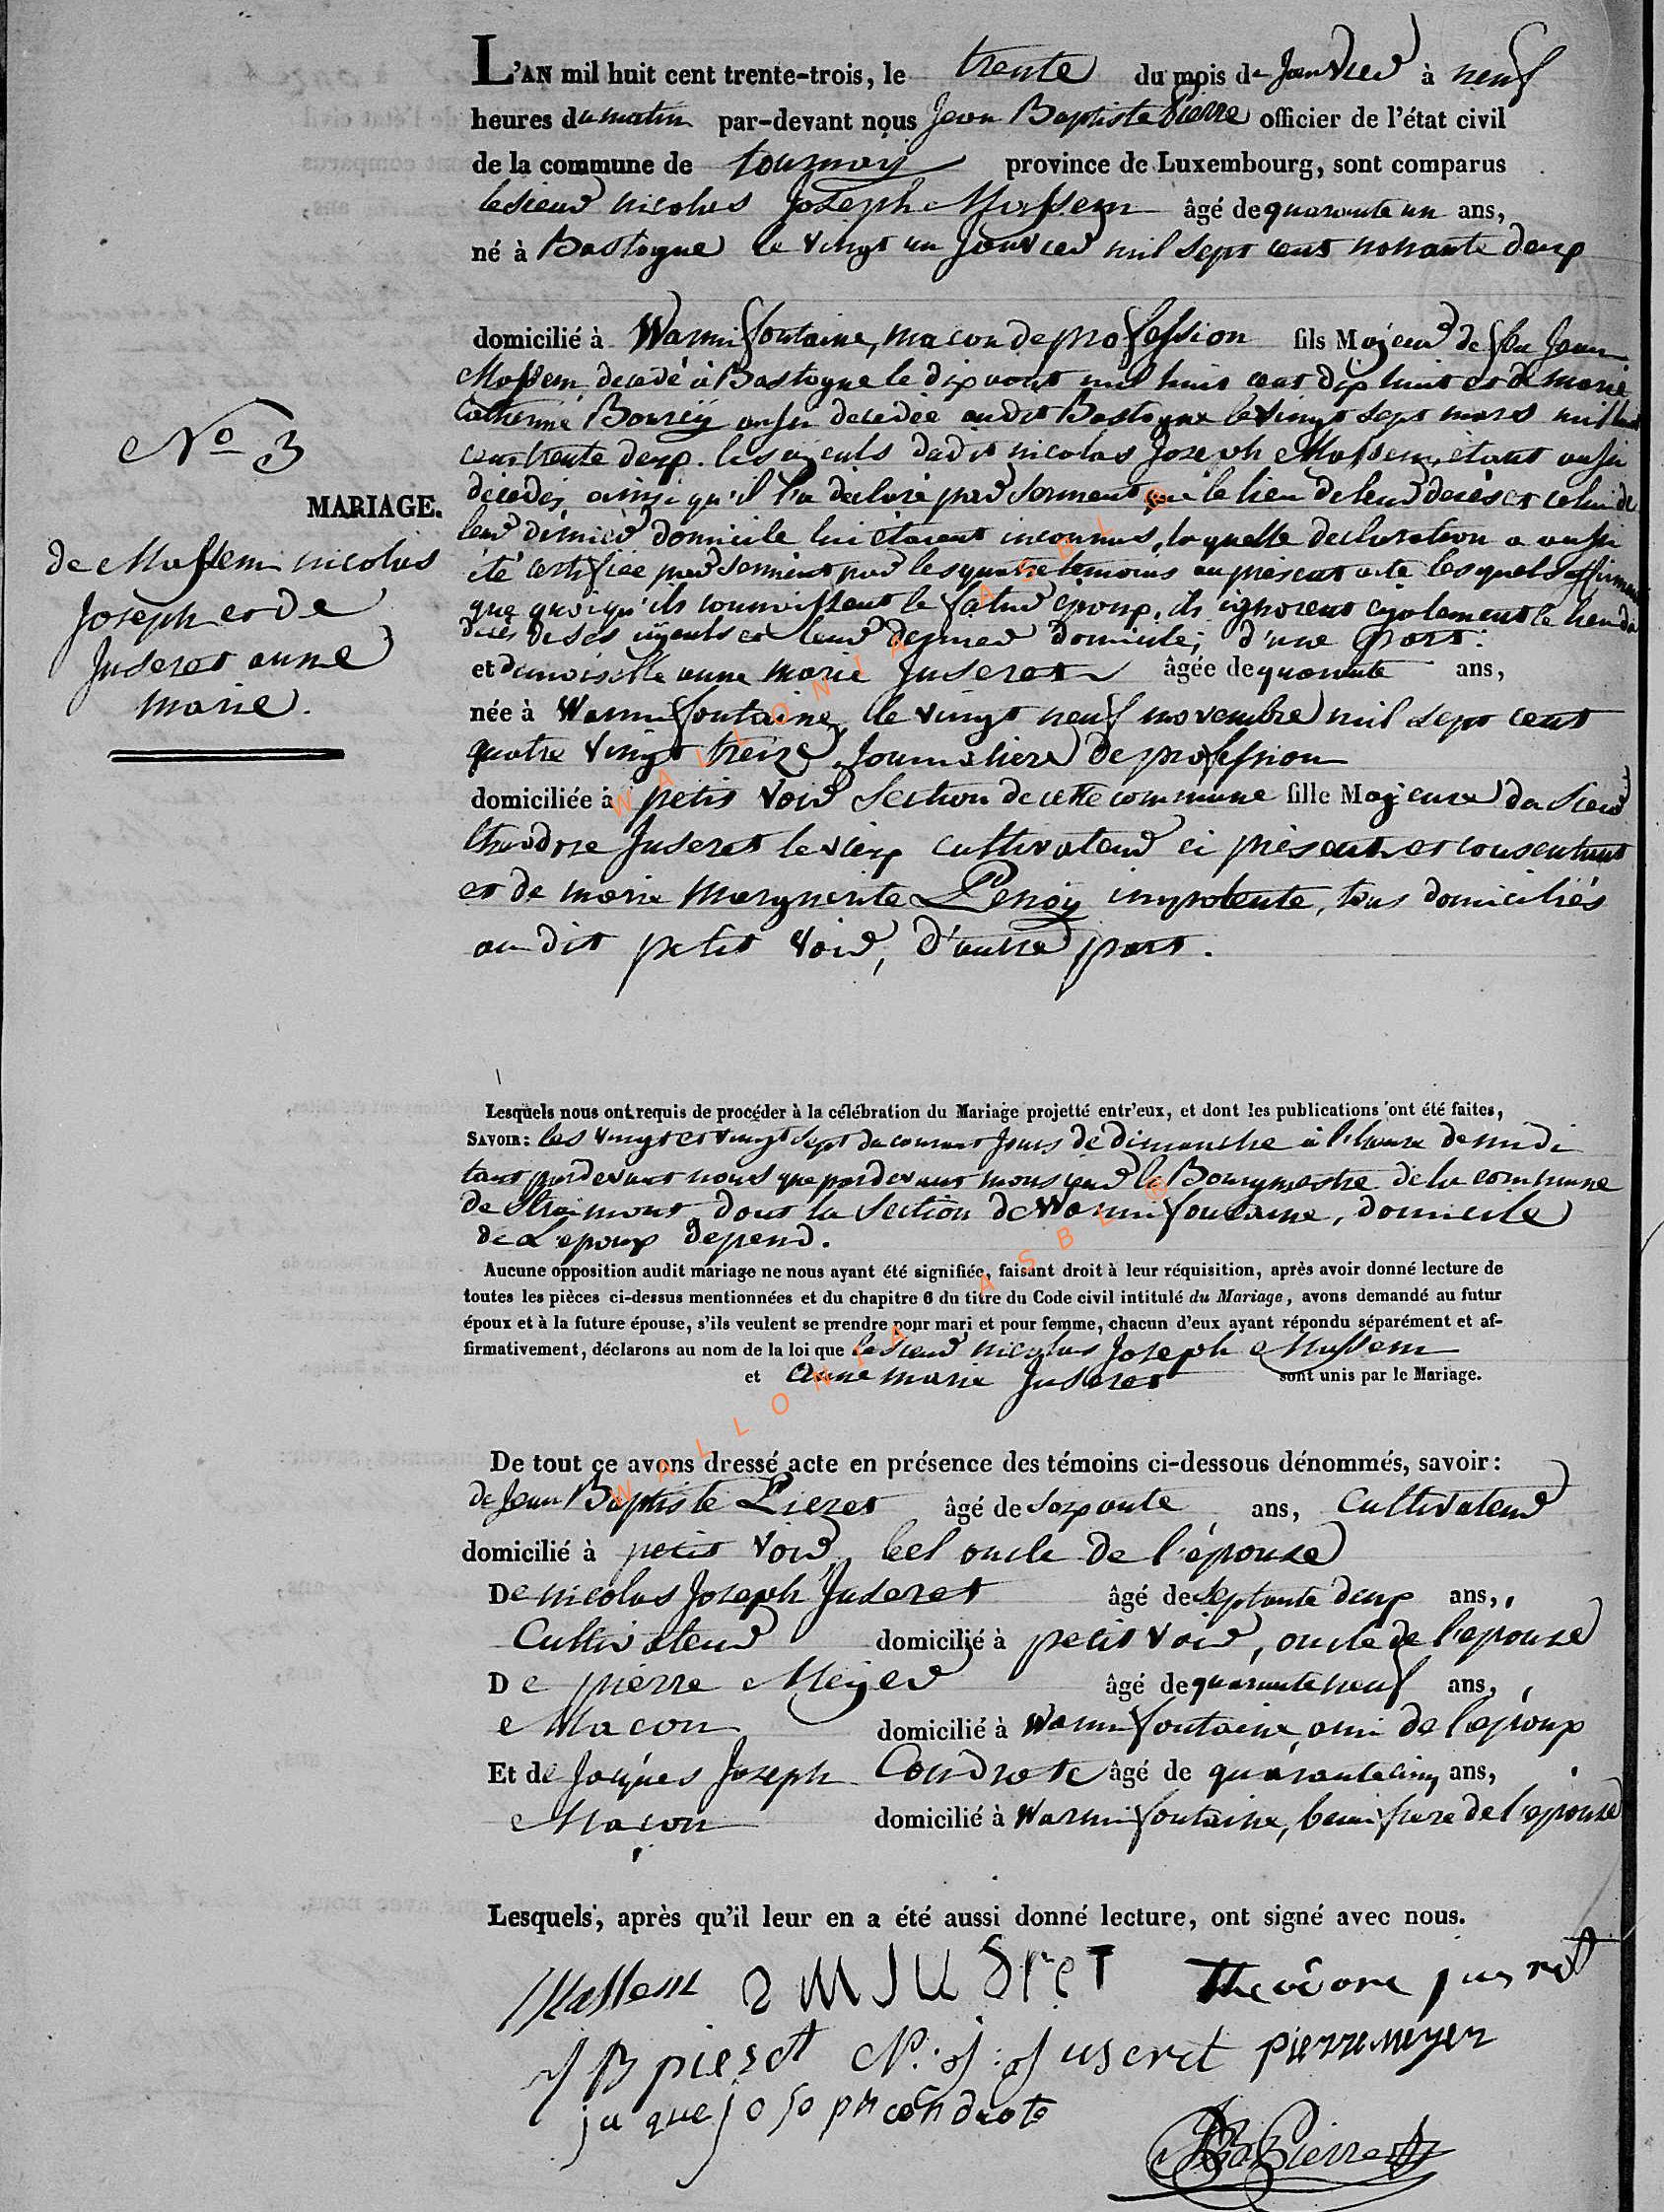 L'AN mil huit cent trente-trois, le trente du mois de Janvier à neuf
heures du matin par-devant nous Jean Baptiste Pierre officier de l'état civil
de la commune de tournay province de Luxembourg, sont comparus
le sieur nicolas Joseph Massem âgé de quarante un ans,
né à Bastogne le vingt un Janvier mil sept cent nonante deux
domicilié à Warmifontaine, macon de profession fils Majeur de feu Jean
Massem decedé à Bastogne le dix aout mil huit cent dix huit et de marie
Catherine Bourcÿ aussi decedée audit Bastogne le vingt sept mars mil huit
cent trente deux. les ayeuls dudit nicolas Joseph Massem, étant aussi
decedés ainsi qu'il l'a declaré par serment que le lieu de leur decès et celui de
leur dernier domicile lui étaient inconnus, laquelle declaration a aussi
été certifiée par serment par les quatre temoins au présent acte lesquels affirment
que quoiqu'ils connoissent le futur epoux, ils ignorent egalement le lieu du
decès de ses ayeuls et leur dernier domicile; d'une part:
N° 3
MARIAGE.
de Massem nicolas
Joseph et de
Juseret anne
marie.
et demoiselle anne marie Juseret âgée de quarante ans,
née à Warmifontaine, le vingt neuf novembre mil sept cent
quatre vingt treize, Journaliere de profession
domiciliée à petit Voir Section de cette commune fille Majeure du Sieur
theodore Juseret le vieux cultivateur ci présent et consentant
et de marie marguerite Penoÿ impotente, tous domiciliés
audit petit Voir, d'autre part.
Lesquels nous ont requis de procéder à la célébration du Mariage projetté entr'eux, et dont les publications ont été faites,
SAVOIR: les vingt et vingt sept du courant Jours de dimanche à l'heure de midi
tant pardevant nous que pardevant monsieur le Bourgmestre de la commune
de Straimont, dont la Section de Warmifontaine, domicile
de L'epoux depend.
Aucune opposition audit mariage ne nous ayant été signifiée, faisant droit à leur réquisition, après avoir donné lecture de
toutes les pièces ci-dessus mentionnées et du chapitre 6 du titre du Code civil intitulé du Mariage, avons demandé au futur
époux et à la future épouse, s'ils veulent se prendre pour mari et pour femme, chacun d'eux ayant répondu séparément et af-
firmativement, déclarons au nom de la loi que le Sieur nicolas Joseph Massem
et Anne marie Juseret sont unis par le Mariage.
De tout ce avons dressé acte en présence des témoins ci-dessous dénommés, savoir:
de Jean Baptiste Pieret âgé de Soixante ans, Cultivateur
domicilié à petit Voir, bel oncle de l'épouse
De nicolas Joseph Juseret âgé de Septante deux ans,
Cultivateur domicilié à petit Voir, oncle de l'epouse
De pierre Meyer âgé de quarante neuf ans,
Macon domicilié à Warmifontaine, ami de l'epoux
Et de Jacques Joseph Condrote âgé de quarante cinq ans,
Maçon domicilié à Warmifontaine, beau frere de l'epouse
Lesquels, après qu'il leur en a été aussi donné lecture, ont signé avec nous.
Massem a M JUSreT Theodore jusret
J B pieret N. J. Juseret pierre meyer
jaque joseph condrote
JBa Pierre
WALLONIA ASBL ®
WALLONIA ASBL ®